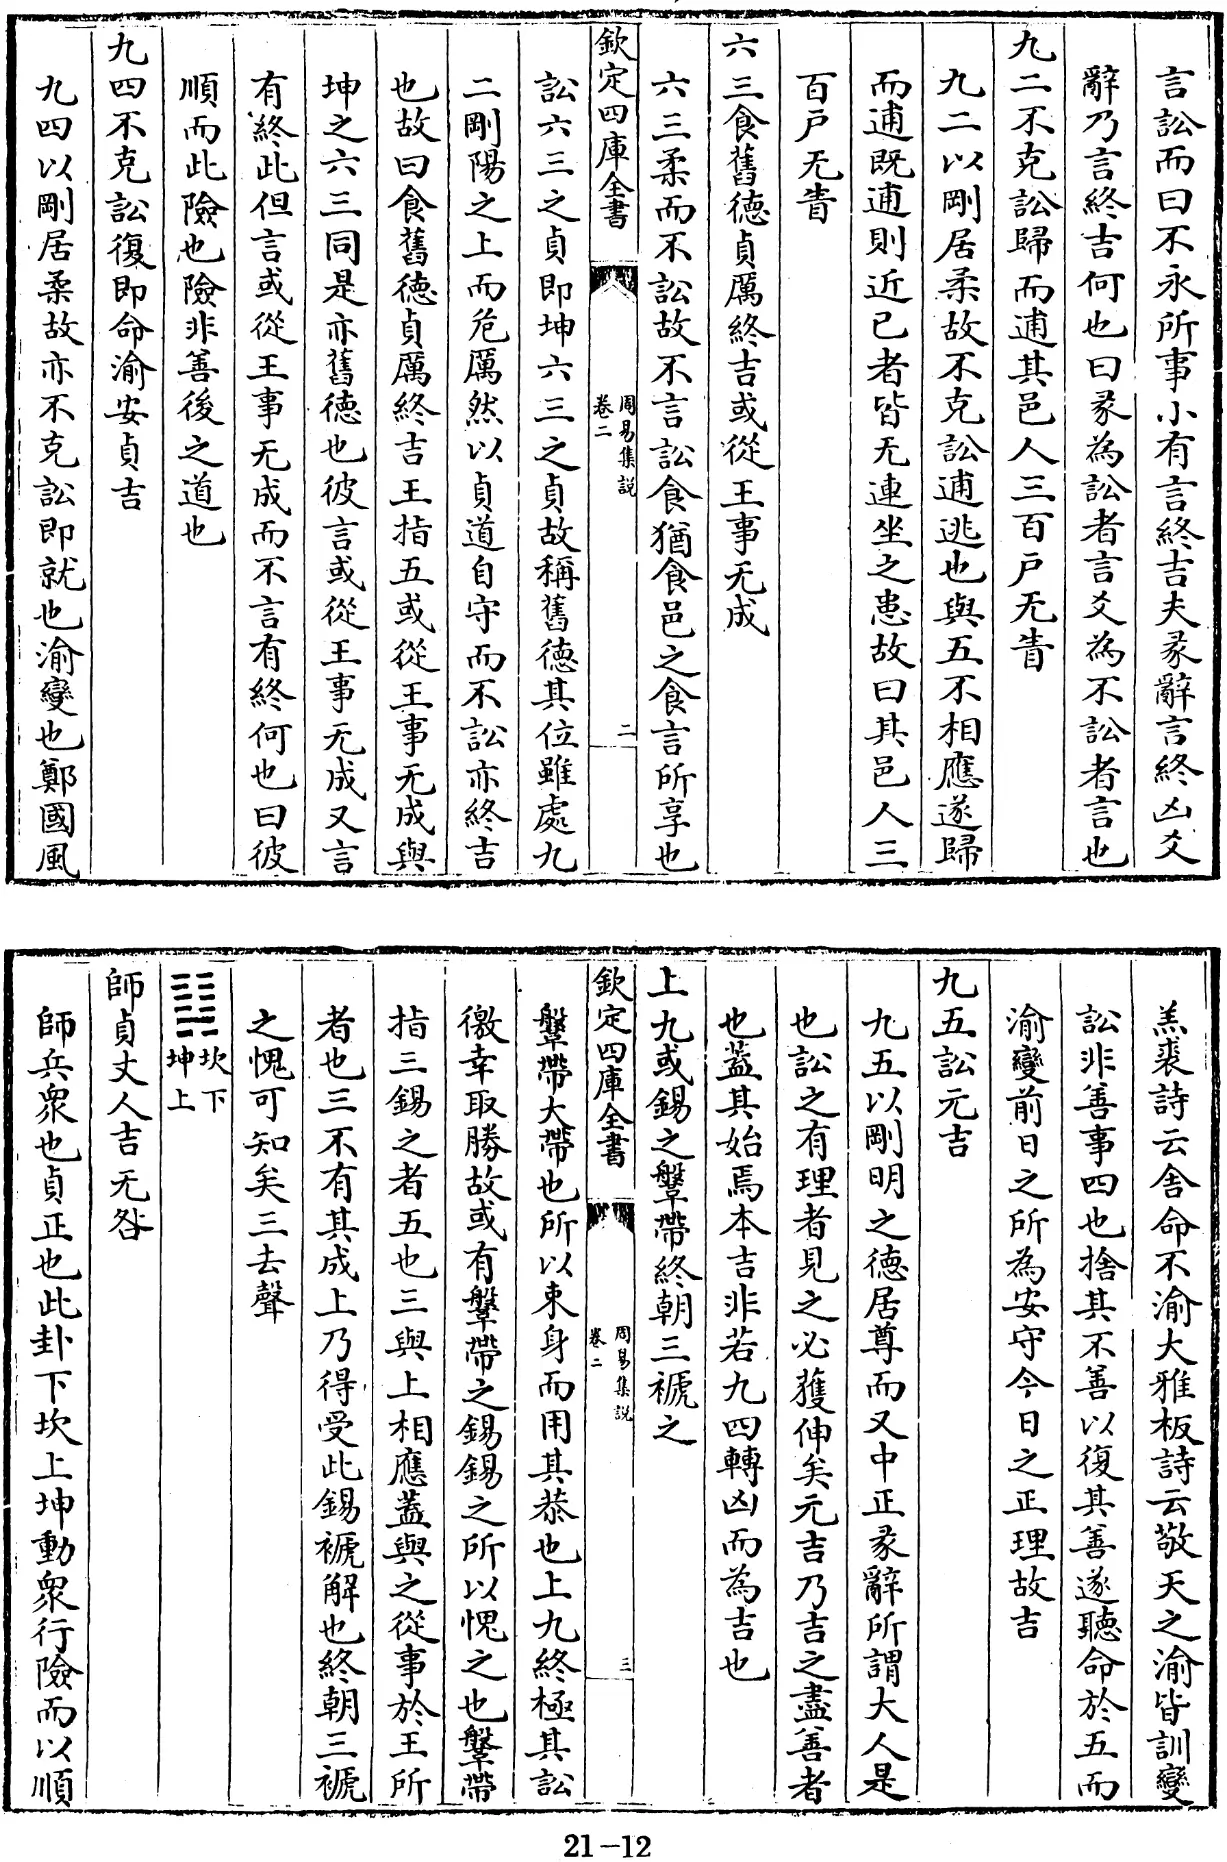 言訟而曰不永所事小有言終吉夫彖辭言終凶爻
辭乃言終吉何也曰彖為訟者言爻為不訟者言也
九二不克訟歸而逋其邑人三百戶无眚
九二以剛居柔故不克訟逋逃也與五不相應遂歸
而逋既逋則近已者皆无連坐之患故曰其邑人三
百戶无眚
六三食舊德貞厲終吉或從王事无成
六三柔而不訟故不言訟食猶食邑之食言所享也
欽定四庫全書
周易集說
卷二
二
訟六三之貞即坤六三之貞故稱舊德其位雖處九
二剛陽之上而危厲然以貞道自守而不訟亦終吉
也故曰食舊德貞厲終吉王指五或從王事无成與
坤之六三同是亦舊德也彼言或從王事无成又言
有終此但言或從王事无成而不言有終何也曰彼
順而此險也險非善後之道也
九四不克訟復即命渝安貞吉
九四以剛居柔故亦不克訟即就也渝變也鄭國風
羔裘詩云舍命不渝大雅板詩云敬天之渝皆訓變
訟非善事四也捨其不善以復其善遂聽命於五而
渝變前日之所為安守今日之正理故吉
九五訟元吉
九五以剛明之德居尊而又中正彖辭所謂大人是
也訟之有理者見之必獲伸矣元吉乃吉之盡善者
也蓋其始焉本吉非若九四轉凶而為吉也
上九或錫之鞶帶終朝三褫之
欽定四庫全書
周易集說
卷二
三
鞶帶大帶也所以束身而用其恭也上九終極其訟
徼幸取勝故或有鞶帶之錫錫之所以愧之也鞶帶
指三錫之者五也三與上相應蓋與之從事於王所
者也三不有其成上乃得受此錫褫解也終朝三褫
之愧可知矣三去聲
䷆坎下
坤上
師貞丈人吉无咎
師兵衆也貞正也此卦下坎上坤動衆行險而以順
21-12